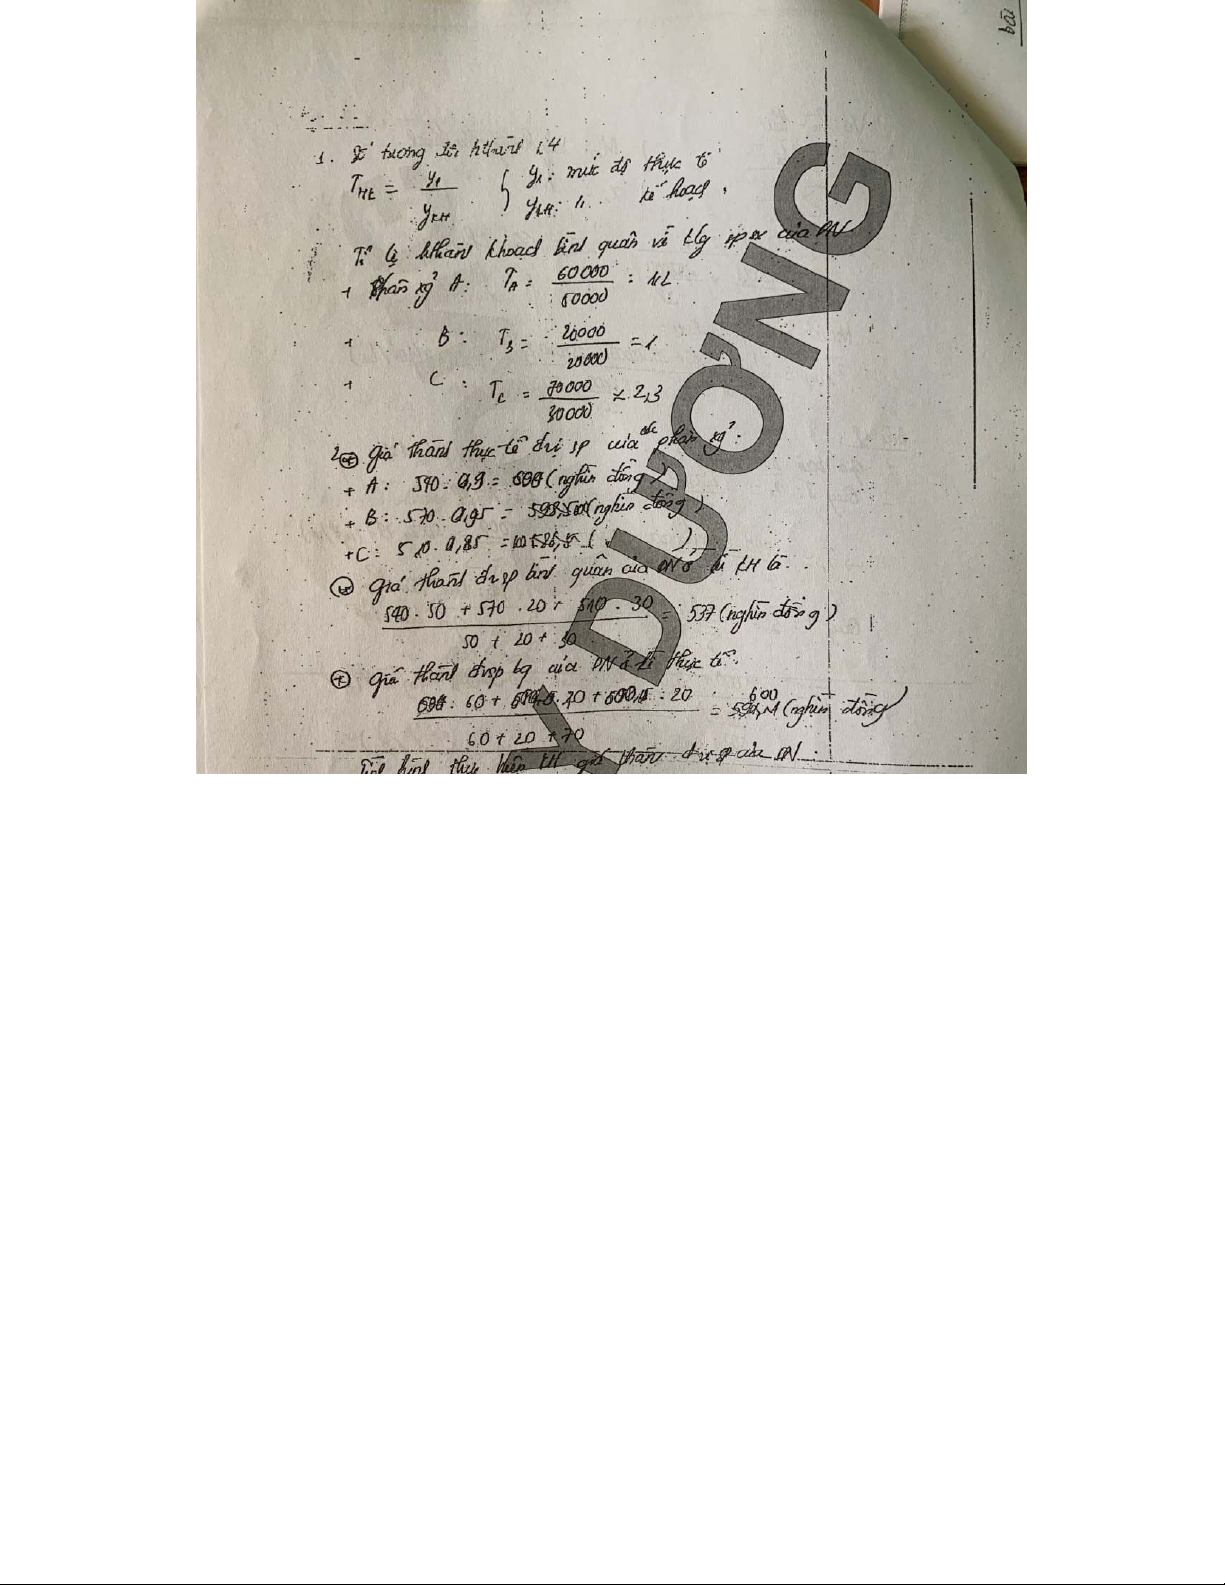 bài
1. Số tương đối hthành
T_HT = y₁ / y_KH { y₁: mức độ thực tế
y_KH: " kế hoạch
Tỉ lệ hthành khoạch bình quân về klg spsx của DN
+ Phân xg² A: T_A = 60000 / 50000 = 1,2
+ B: T_B = 20000 / 20000 = 1
+ C: T_C = 70000 / 30000 ≈ 2,3
2. ⊕ Giá thành thực tế đvị sp của các phân xg²:
+ A: 540. 0,9 = (nghìn đồng)
+ B: 570. 0,95 = (nghìn đồng)
+ C: 510. 0,85 =
Giá thành đvsp bình quân của DN ở kì KH là
540.50 + 570.20 + 510.30 / 50 + 20 + 30 = 537 (nghìn đồng)
⊕ Giá thành đvsp bq của DN ở kì thực tế:
60 + 20 + 70 = 600 (nghìn đồng)
Tình hình thực hiện KH giá thành đvsp của DN
Y DƯƠNG